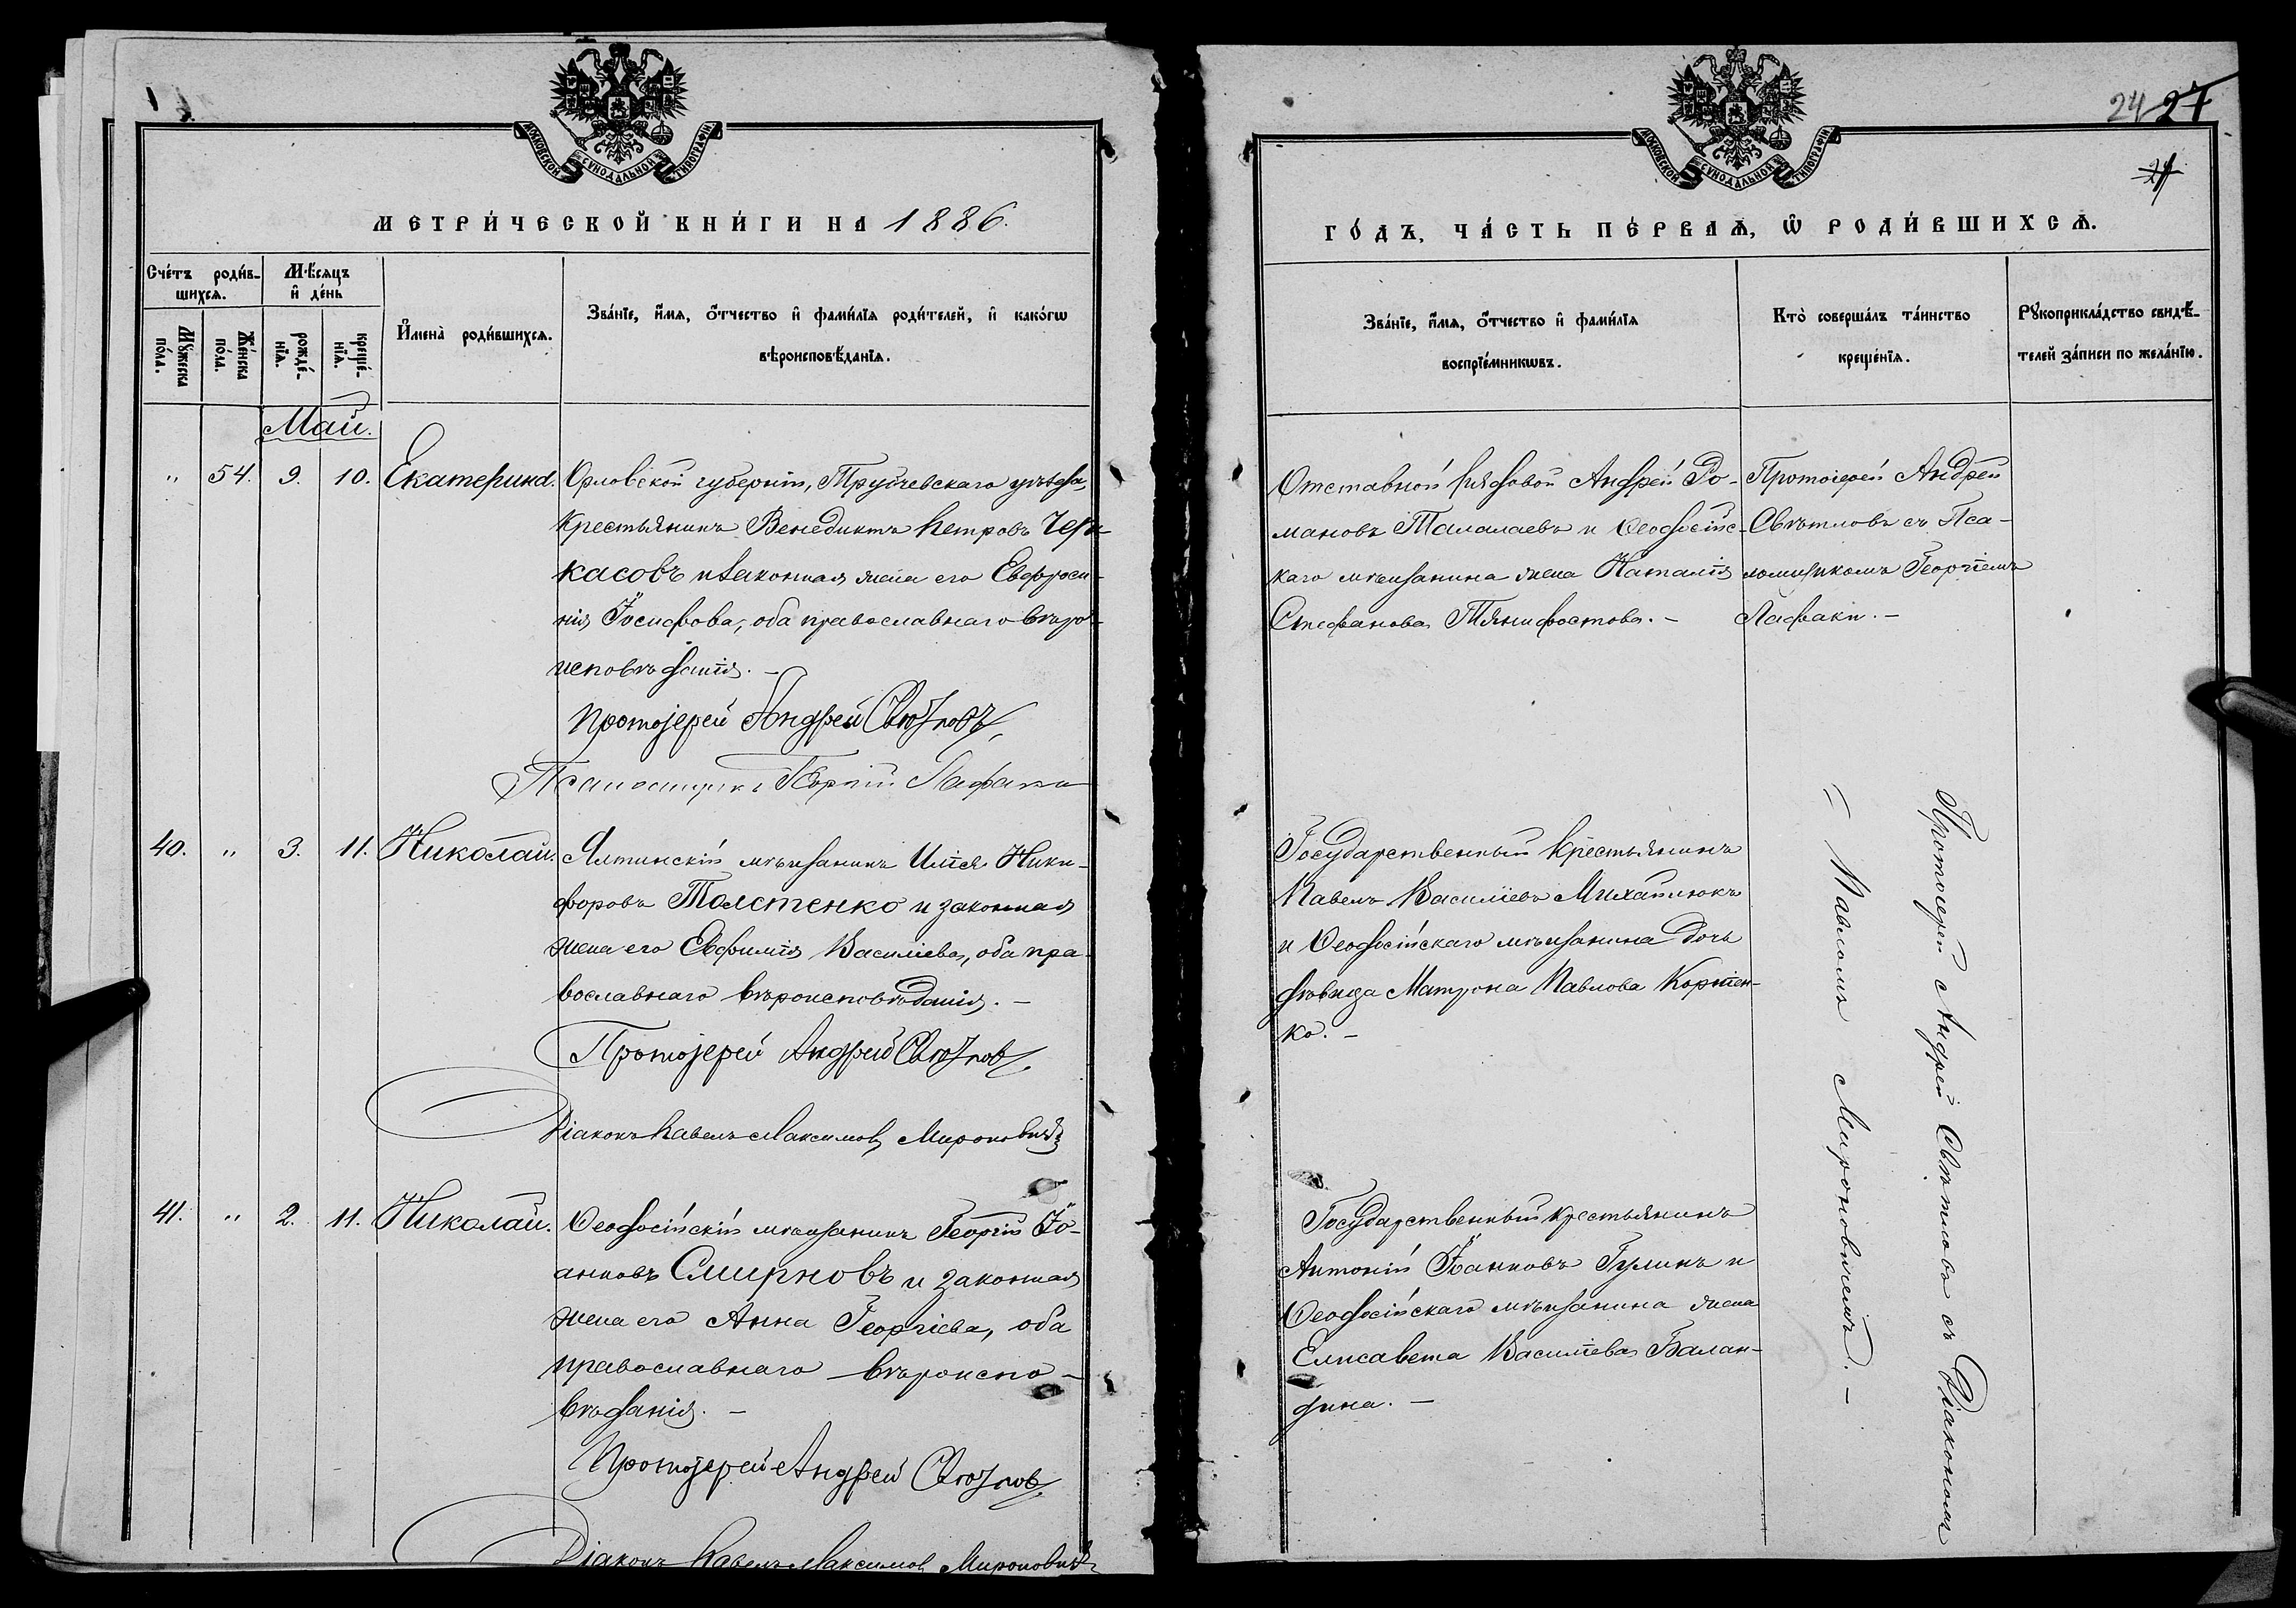 МОСКОВСКОЙ СУНОДАЛЬНОЙ ТИПОГРАФІИ
МЕТРИ́ЧЕСКОЙ КНИ́ГИ НА 1886.
Сче́тъ роди́в-
шихсѧ.
Мѣ́сяцъ
и҆ де́нь
Мꙋ́жеска
по́ла.
Же́нска
по́ла.
рожде́-
нїѧ.
креще́-
нїѧ.
И҆мена̀ роди́вшихсѧ.
Зва́нїе, и҆́мѧ, ѻ҆́тчество и҆ фами́лїѧ роди́телей, и҆ како́гѡ
вѣроисповѣ́данїѧ.
Май.
" 54. 9. 10. Екатерина. Орловской губерніи, Трубчевскаго уѣзда,
крестьянинъ Венедиктъ Петровъ Чер-
касовъ и законная жена его Евфроси-
нія Іосифова, оба православнаго вѣро-
исповѣданія. –
Протоіерей Андрей Свѣтловъ
Псаломщикъ Георгій Лафаки
40. " 3. 11. Николай. Ялтинскій мѣщанинъ Илія Ники-
форовъ Толстенко и законная
жена его Евфимія Василіева, оба пра-
вославнаго вѣроисповѣданія. –
Протоіерей Андрей Свѣтлов
Діаконъ Павелъ Максимов Мироновичъ
41. " 2. 11. Николай. Ѳеодосійскій мѣщанинъ Георгій Іо-
анновъ Смирновъ и законная
жена его Анна Георгіева, оба
православнаго вѣроиспо-
вѣданія. –
Протоіерей Андрей Свѣтлов
Діаконъ Павелъ Максимов Мироновичъ
24 27
24
МОСКОВСКОЙ СУНОДАЛЬНОЙ ТИПОГРАФІИ
ГО́ДЪ, ЧА́СТЬ ПЕ́РВАѦ, Ѡ҆ РОДИ́ВШИХСѦ.
Зва́нїе, и҆́мѧ, ѻ҆́тчество и҆ фами́лїѧ
воспрїе́мникѡвъ.
Кто̀ соверша́лъ та́инство
креще́нїѧ.
Рꙋкоприкла́дство свидѣ́-
телей за́писи по жела́нїю.
Отставной рядовой Андрей Ро-
мановъ Талалаевъ и Ѳеодосійс-
каго мѣщанина жена Наталія
Стефанова Тянифостова. –
Протоіерей Андрей
Свѣтловъ съ Пса-
ломщикомъ Георгіемъ
Лафаки. –
Государственный крестьянинъ
Павелъ Василіевъ Михайлюкъ
и Ѳеодосійскаго мѣщанина дочь
дѣвица Матрона Павлова Корніен-
ко. –
Государственный крестьянинъ
Антоній Іоанновъ Гулинъ и
Ѳеодосійскаго мѣщанина жена
Елисавета Василіева Балан-
дина. –
Протоіерей Андрей Свѣтловъ съ Діакономъ
= Павломъ Мироновичемъ. –